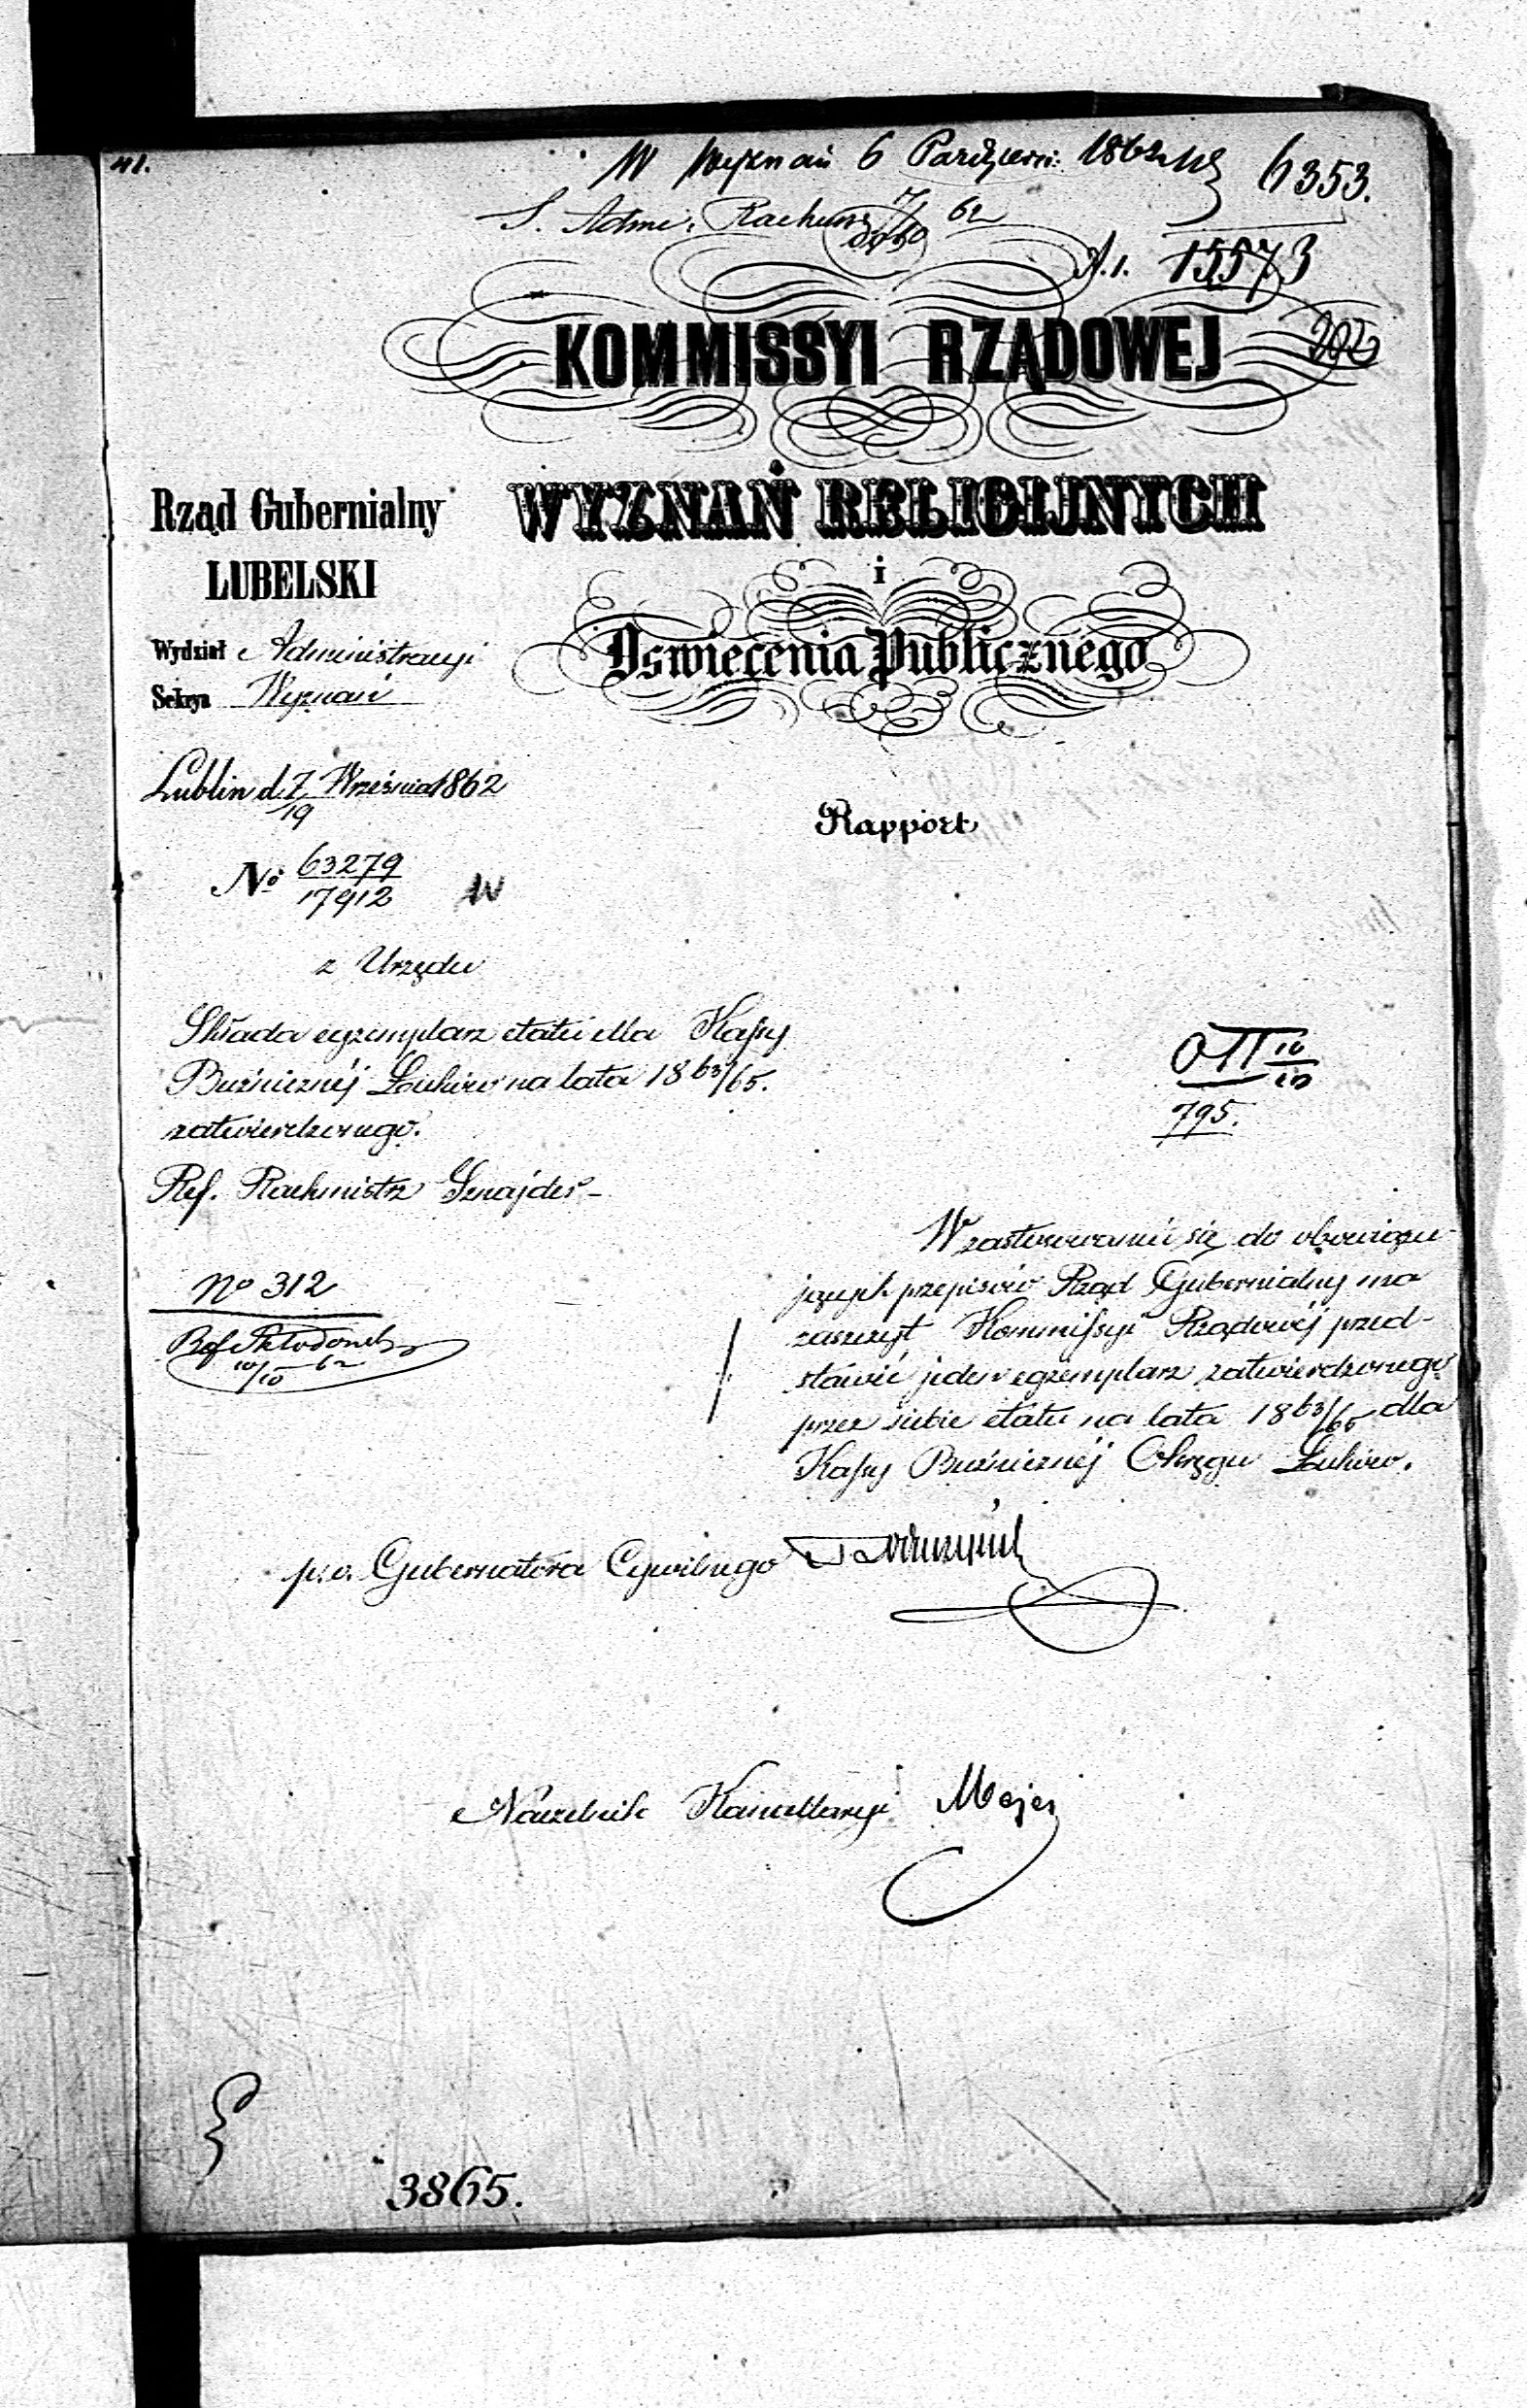 41.
W Wyznań 6 Paździer: 1862 6353.
S. Admi: Rachun 62
A.1. 15573
202
KOMMISSYI RZĄDOWEJ
WYZNAŃ RELIGIJNYCH
i
Oswiecenia Publicznego
Rząd Gubernialny
LUBELSKI
Wydział Administracyi
Sekcya Wyznań
Lublin d. 7/19 Września 1862
Rapport
No 63279
17912 W
z Urzędu
Składa egzemplarz etatu dla Kassy
Bużnicznéj Łuków na lata 1863/65.
zatwierdzonego.
Ref. Rachmistrz Sznajder-
No 312
10/10 62
OII 10/10
795.
W zastosowaniu się do obowiązu-
jących przepisów Rząd Gubernialny ma
zaszczyt Kommissyi Rządowéj przed-
stawić jeden egzemplarz zatwierdzonego
przez siebie etatu na lata 1863/65 dla
Kassy Bużnicznéj Okręgu Łuków.
p.o. Gubernatora Cywilnego
Naczelnik Kancellaryi Majer
3865.